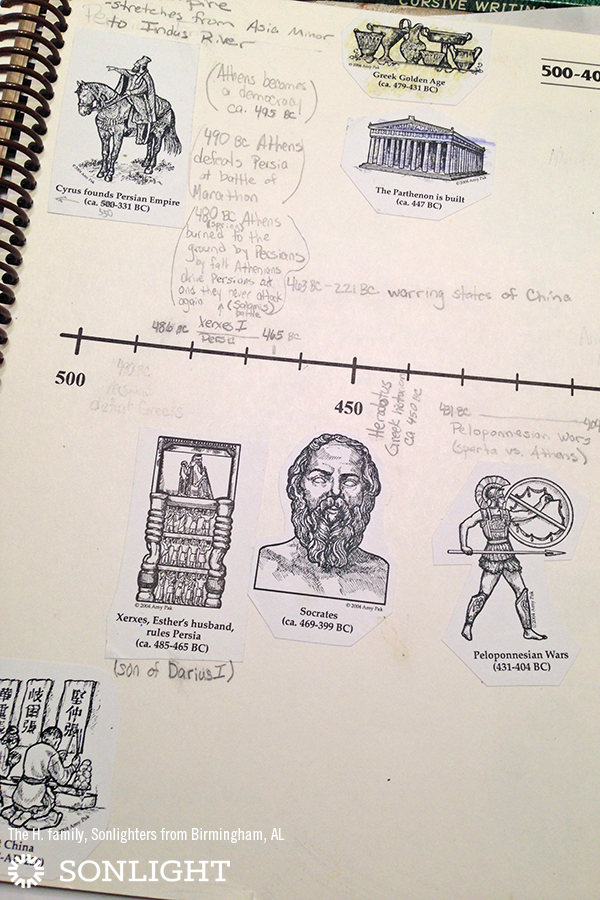 CURSIVE WRITING
-stretches from Asia Minor
to Indus River
Greek Golden Age
(ca. 479-431 BC)
500-40
(Athens becomes
a democracy
ca. 495 BC)
490 BC Athens
defeats Persia
at battle of
Marathon
480 BC Athens
(spring)
burned to the
ground by Persians
by fall Athenians
drive Persians out
and they never attack
again
(Salamis)
battle
Cyrus founds Persian Empire
(ca. 500-331 BC)
550
The Parthenon is built
(ca. 447 BC)
© 2004 Amy Pak
463 BC - 221 BC warring states of China
486 BC Xerxes I 465 BC
Persia
500
450
490 BC
defeat Greeks
Herodotus
Greek historian
ca 450 BC
431 BC 404
Peloponnesian Wars
(Sparta vs. Athens)
© 2004 Amy Pak
Xerxes, Esther's husband,
rules Persia
(ca. 485-465 BC)
(son of Darius I)
© 2004 Amy Pak
Socrates
(ca. 469-399 BC)
Peloponnesian Wars
(431-404 BC)
岐困張
堅仲張
China
The H. family, Sonlighters from Birmingham, AL
SONLIGHT